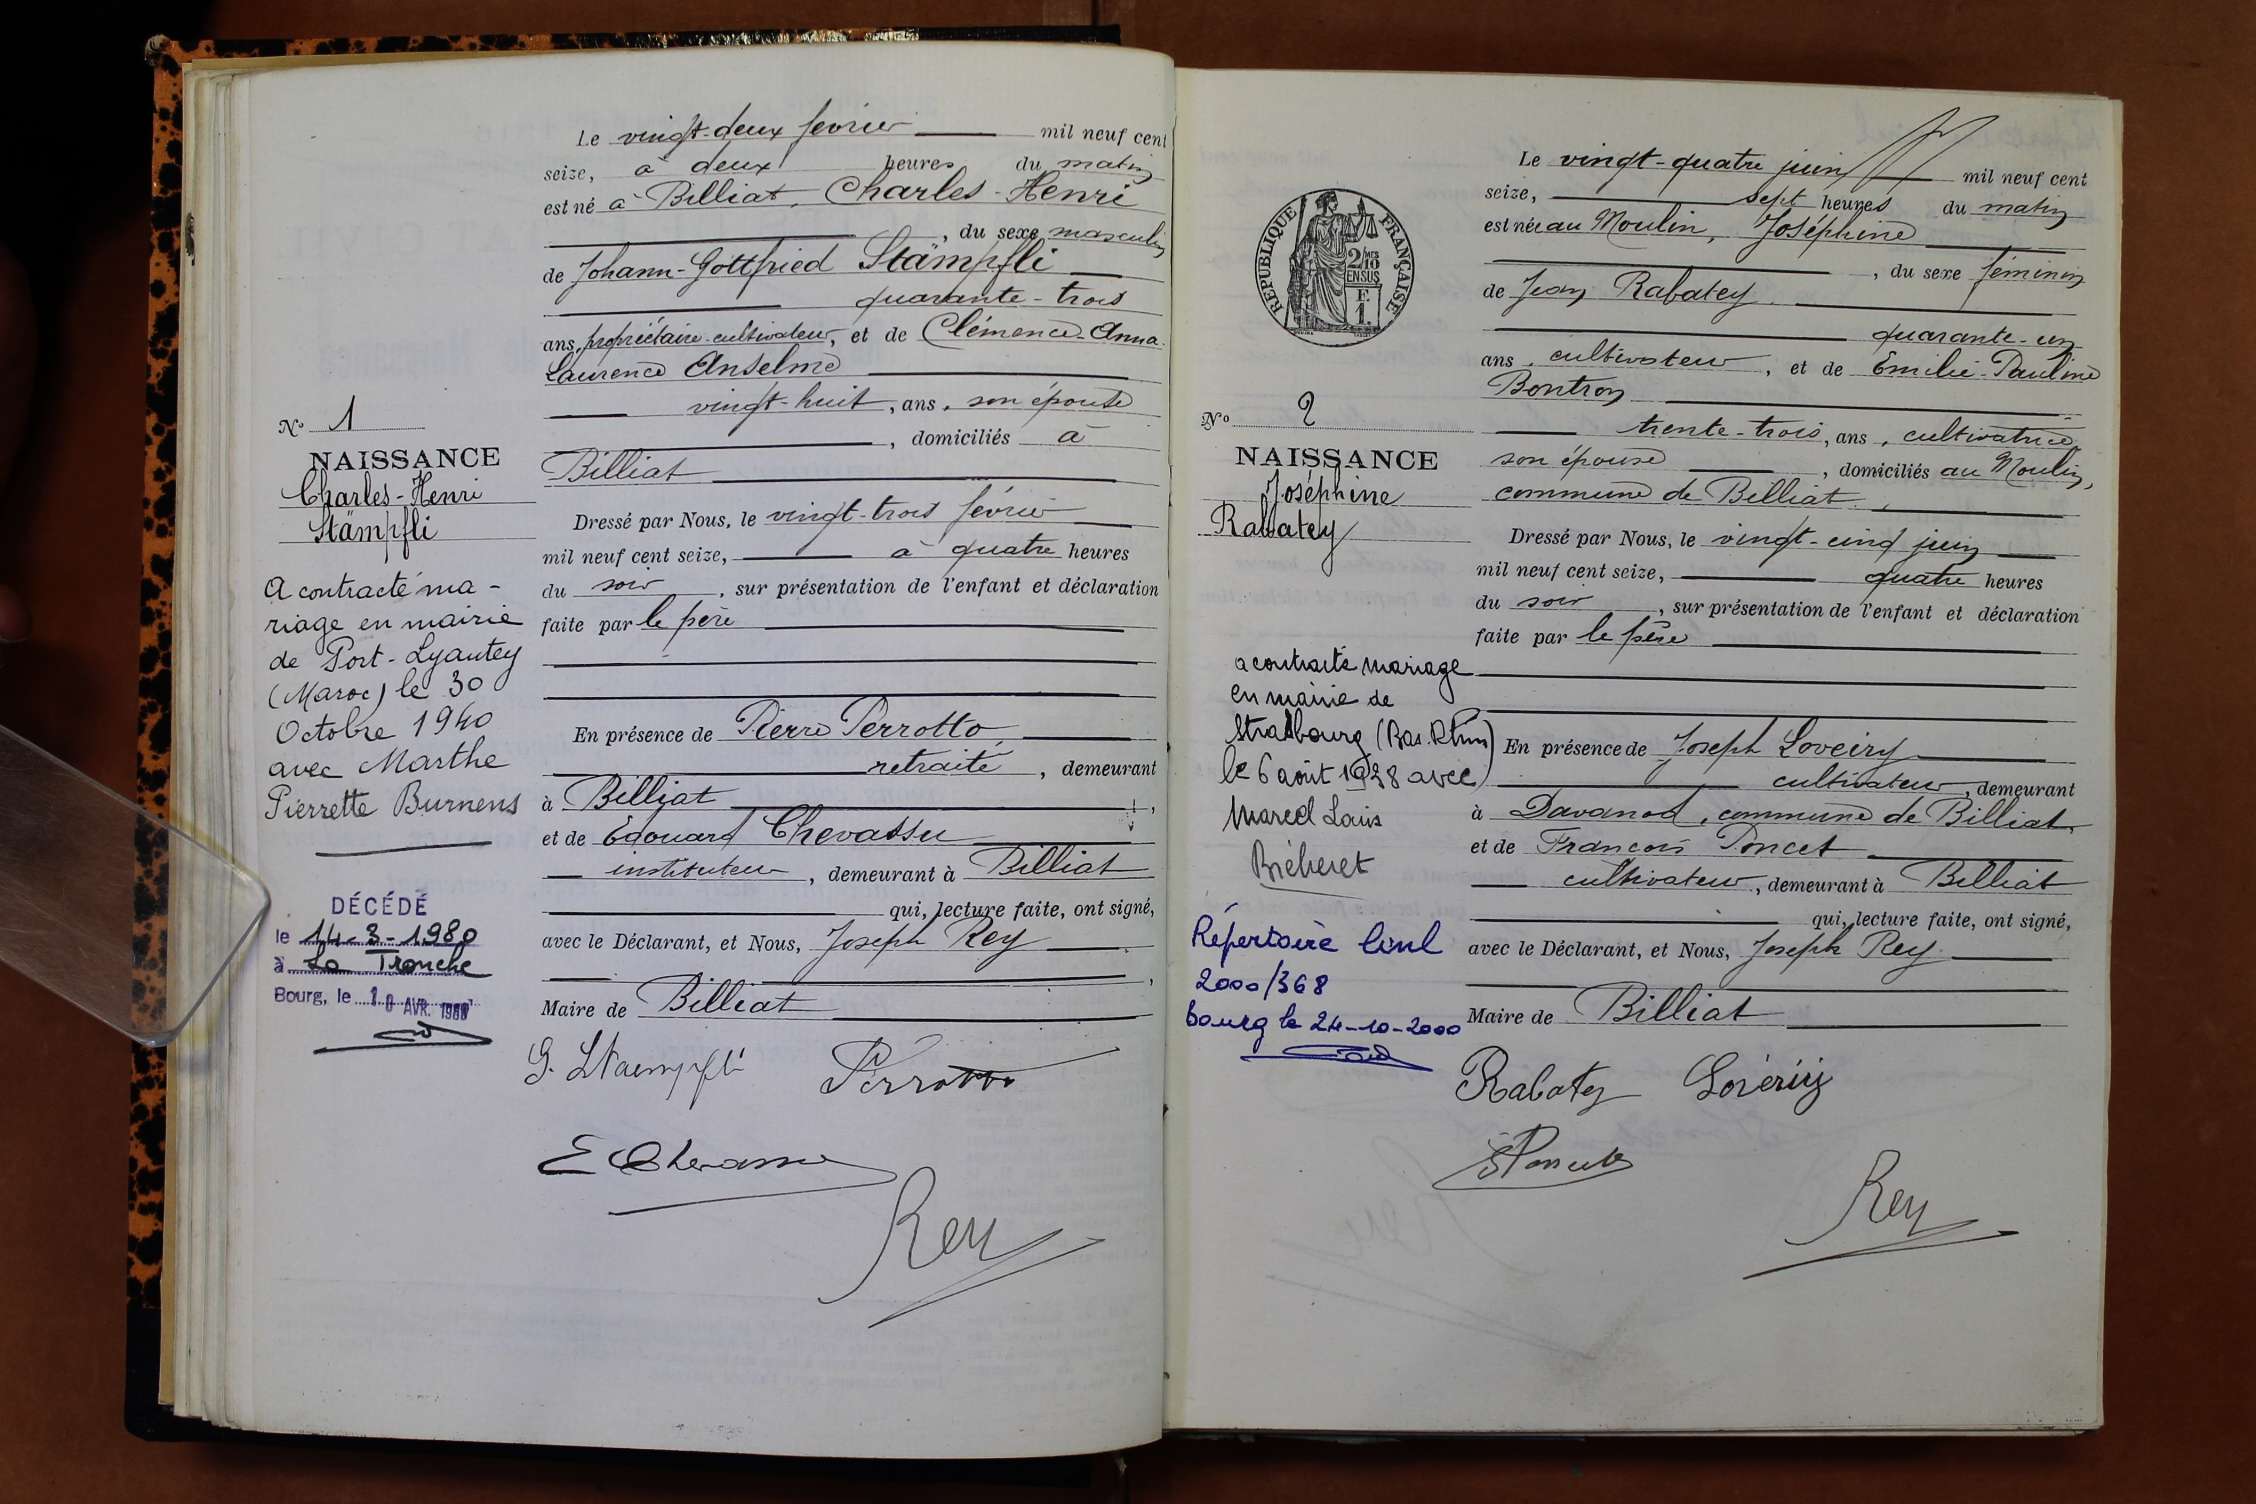 Le vingt-deux février mil neuf cent
seize, à deux heures du matin
est né à Billiat, Charles-Henri
, du sexe masculin
de Johann-Gottfried Stämpfli
quarante-trois
ans, propriétaire-cultivateur, et de Clémence-Anna-
Laurence Anselme
vingt-huit, ans, son épouse
, domiciliés à
Billiat
Dressé par Nous, le vingt-trois février
mil neuf cent seize, à quatre heures
du soir, sur présentation de l'enfant et déclaration
faite par le père
En présence de Pierre Perrotto,
retraité, demeurant
à Billiat,
et de Edouard Chevassu
instituteur, demeurant à Billiat
qui, lecture faite, ont signé,
avec le Déclarant, et Nous, Joseph Rey
,
Maire de Billiat
G. Staempfli Perrotto
E Chevassu
Rey
No 1
NAISSANCE
Charles-Henri
Stämpfli
A contracté ma-
riage en mairie
de Port-Lyautey
(Maroc) le 30
Octobre 1940
avec Marthe
Pierrette Burnens
DÉCÉDÉ
le 14-3-1980
à La Tronche
Bourg, le AVR. 1980
Le vingt-quatre juin mil neuf cent
seize, sept heures du matin
est née au Moulin, Joséphine
, du sexe féminin
de Jean Rabatey
quarante-un
ans, cultivateur, et de Emilie-Pauline
Bontron
trente-trois, ans, cultivatrice
son épouse, domiciliés au Moulin,
commune de Billiat.
Dressé par Nous, le vingt-cinq juin
mil neuf cent seize, quatre heures
du soir, sur présentation de l'enfant et déclaration
faite par le père
En présence de Joseph Loveiry
cultivateur, demeurant
à Davanod, commune de Billiat
et de François Poncet
cultivateur, demeurant à Billiat
qui, lecture faite, ont signé,
avec le Déclarant, et Nous, Joseph Rey
Maire de Billiat
Rabatey
Poncet
Rey
RÉPUBLIQUE FRANÇAISE
2/10
EN SUS
F.
1.
No 2
NAISSANCE
Joséphine
Rabatey
a contracté mariage
en mairie de
Strasbourg (Bas-Rhin)
le 6 août 1938 avec
Marcel Louis
Biéheret
Répertoire Civil
2000/368
Bourg le 24-10-2000